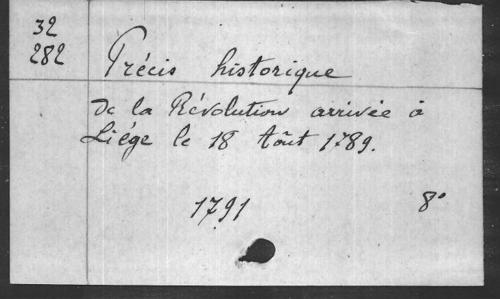 32
282
Précis historique
de la Révolution arrivée à
Liége le 18 Août 1789.
1791 8°